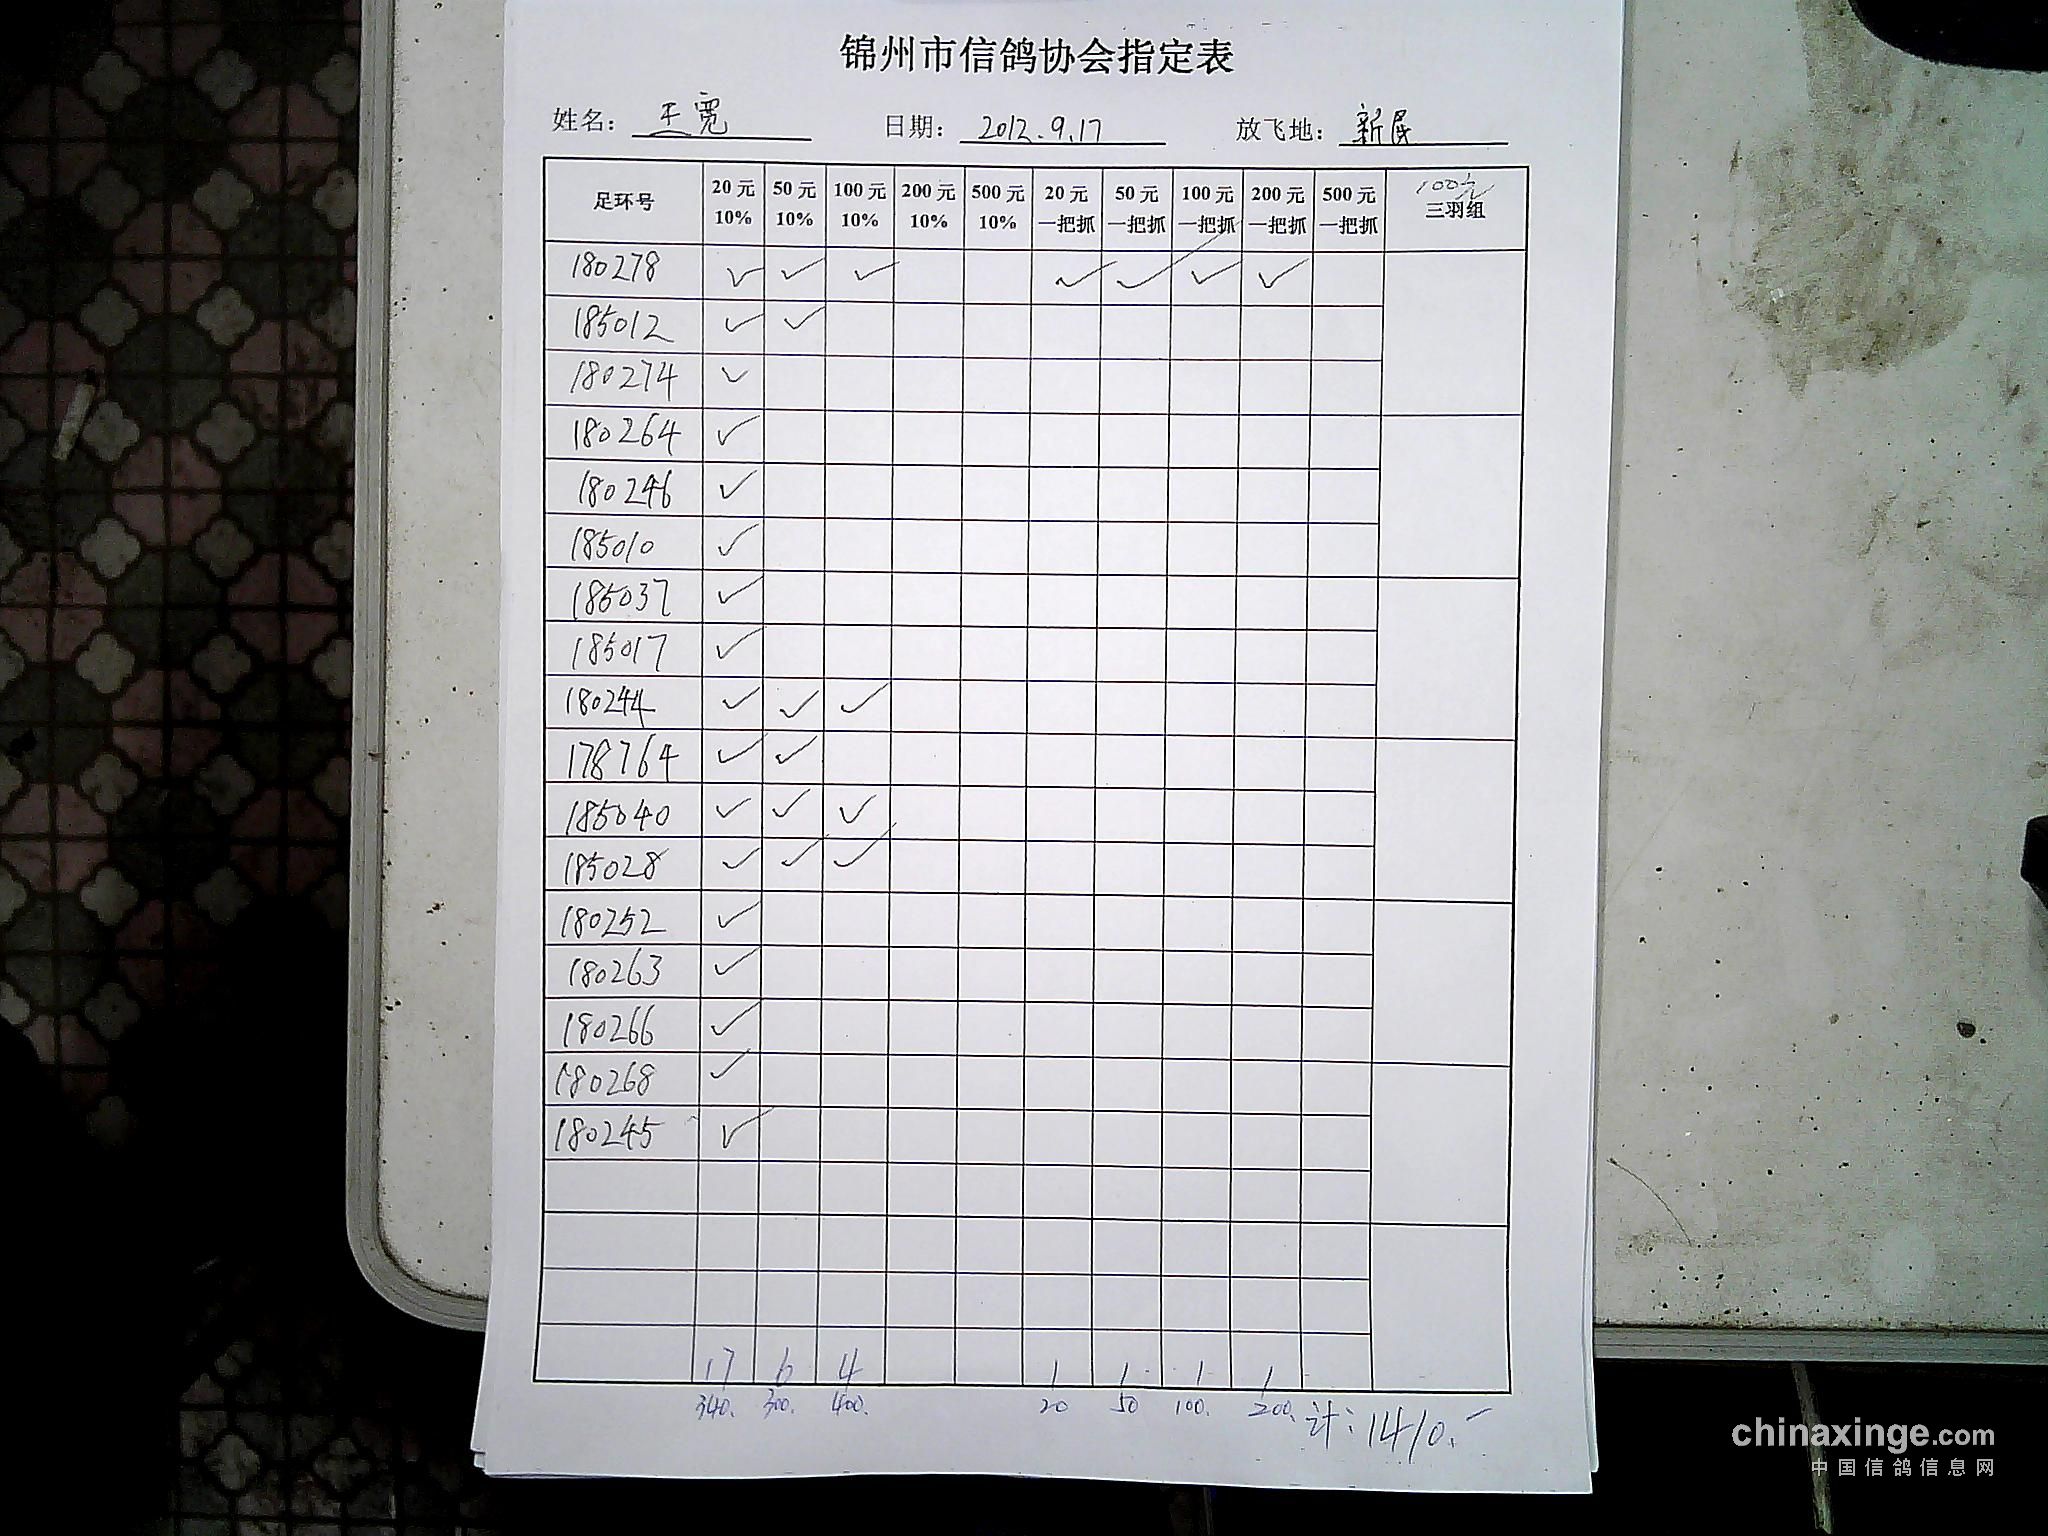 锦州市信鸽协会指定表
姓名： 王宽 日期： 2012.9.17 放飞地： 新民
足环号 20元 10% 50元 10% 100元 10% 200元 10% 500元 10% 20元 一把抓 50元 一把抓 100元 一把抓 200元 一把抓 500元 一把抓 100元 三羽组
180278 ✓ ✓ ✓ ✓ ✓ ✓ ✓
185012 ✓ ✓
180274 ✓
180264 ✓
180246 ✓
185010 ✓
185037 ✓
185017 ✓
180244 ✓ ✓ ✓
178764 ✓ ✓
185040 ✓ ✓ ✓
185028 ✓ ✓ ✓
180252 ✓
180263 ✓
180266 ✓
180268 ✓
180245 ✓
17 6 4 1 1 1 1
340. 300. 400. 20 50 100. 200. 计：1410.-
chinaxinge.com
中国信鸽信息网